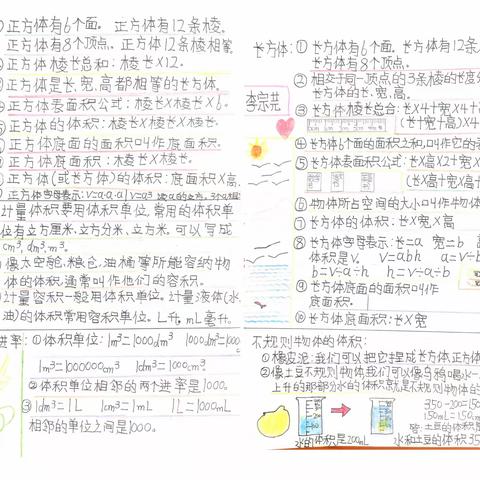 正方体有6个面。正方体有12条棱。
正方体有8个顶点。正方体12条棱相等
正方体棱长总和：棱长X12。
正方体是长、宽、高都相等的长方体。
正方体表面积公式：棱长X棱长X6。
正方体的体积：棱长X棱长X棱长。
正方体底面的面积叫作底面积。
正方体底面积：棱长X棱长。
正方体(或长方体)的体积：底面积X高
正方体字母表示：V=a·a·a V=a³
计量体积要用体积单位，常用的体积单
位有立方厘米，立方分米，立方米，可以写成
cm³，dm³，m³。
像太空舱，粮仓，油桶等所能容纳物
体的体积，通常叫作他们的容积。
计量容积一般用体积单位。计量液体(水
油)的体积常用容积单位。L升，mL毫升。
进率：①体积单位：1m³=1000dm³ 1000dm³=1000
1m³=1000000cm³ 1dm³=1000cm³
②体积单位相邻的两个进率是1000。
③ 1dm³=1L 1cm³=1mL 1L=1000mL
相邻的单位之间是1000。
李宗芫
长方体：①长方体有6个面。长方体有12条
长方体有8个顶点。
②相交于同一顶点的3条棱的长度分
长方体的长、宽、高。
③长方体棱长总合：长X4+宽X4+高
(长+宽+高)X4
④长方体6个面的面积之和，叫作它的表
⑤长方体表面积公式：长X高X2+宽X
(长X高+长X宽+
⑥物体所占空间的大小叫作物体
⑦长方体的体积：长X宽X高
⑧长方体字母表示：长=a 宽=b 高
体积是V。 V=abh a=V÷b
b=V÷a÷h h=V÷a÷b
⑨长方体底面的面积叫作
底面积。
⑩长方体底面积：长X宽
不规则物体的体积：
①橡皮泥：我们可以把它捏成长方体，正方体
②像土豆不规则物体我们可以像乌鸦喝水一
上升的那部分水的体积就是不规则物体的
350-200=150
150mL=150cm
答：土豆的体积是
水的体积是200mL
水和土豆的体积35